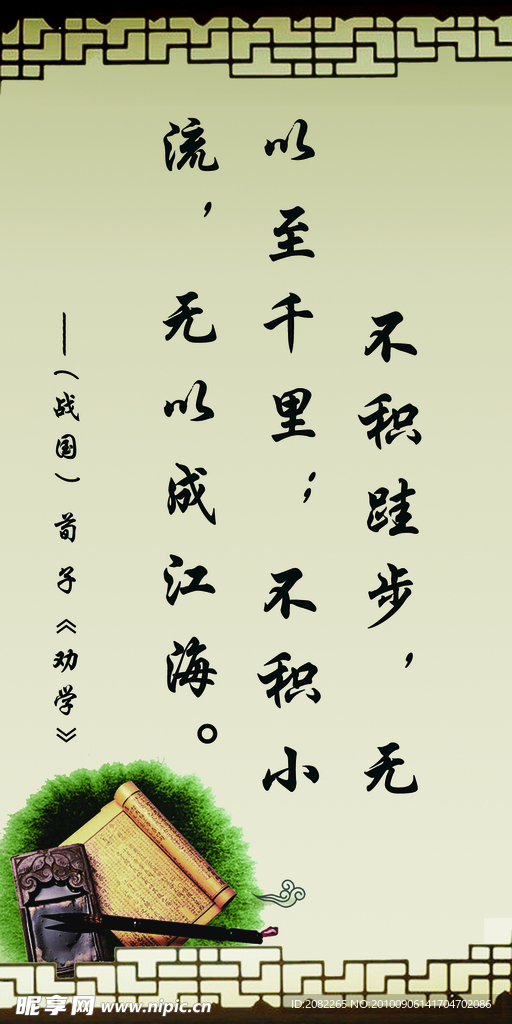 不积跬步，无
以至千里；不积小
流，无以成江海。
—（战国）荀子《劝学》
昵享网 www.nipic.cn
ID:2082265 NO:20100906141704702086